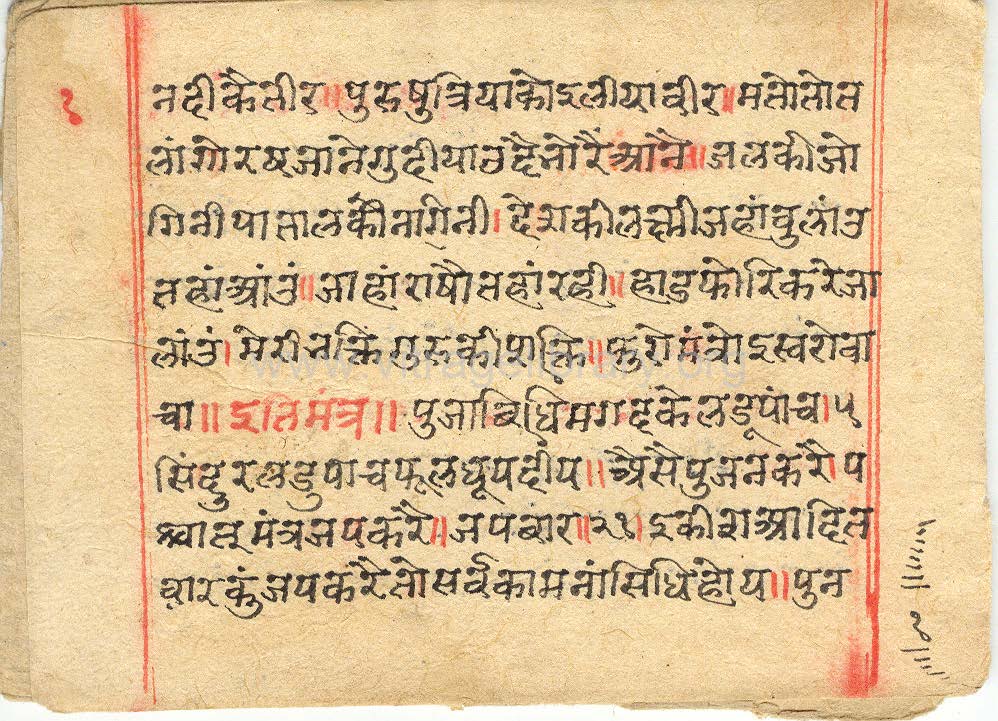 १
नदीकैतीर॥पुरुषपुत्रियाकोइलीयावीर॥मतोतोत
लांगोरषजानेगुदीयाउदैतोरैंआंनै॥जलकीजो
गिनीपातालकीनागिनी।देशकीलक्ष्मीजहांवुलांउ
तहांआंउं॥जाहांराषौतहांरही॥हाडफोरिकरेजा
लांउं।मेरीभक्तिगुरुकीशक्ति॥फुरोमंत्रोइस्वरोवा
चा॥इतिमंत्र॥पुजाविधिमगदकेलडूपांच।५
सिंदुरलडुपांचफूलधूपदीप॥अैसैपुजनकरै।प
श्चातूमंत्रजपकरै॥जपवारा॥२१।इकीशआदित
वारकुंजपकरैतोसर्वकामनांसिधिहोय॥पुन
www.vitragelibrary.org